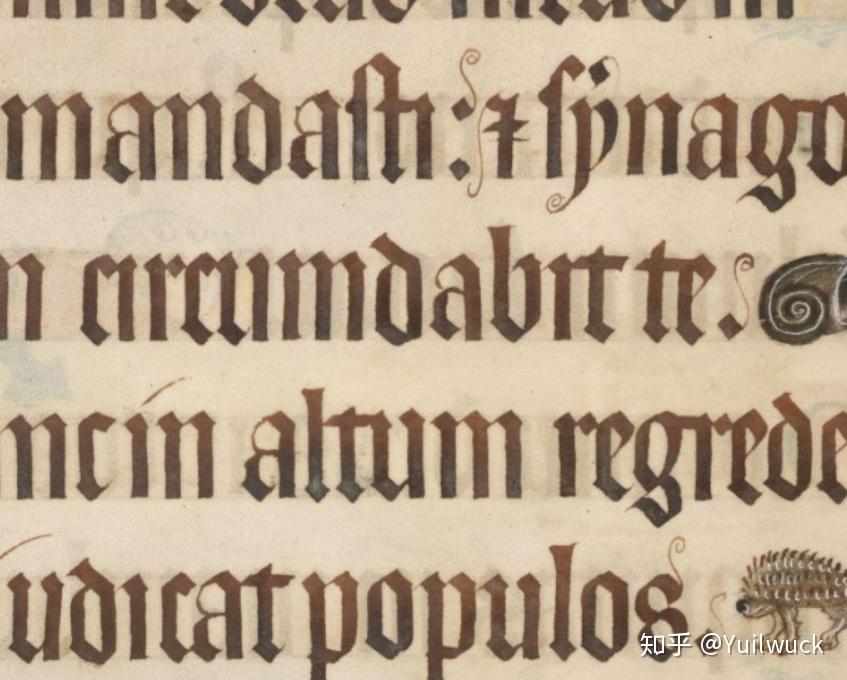 mandasti: ⁊ synago
m circumdabit te.
nc in altum regrede
udicat populos.
知乎 @Yuilwuck